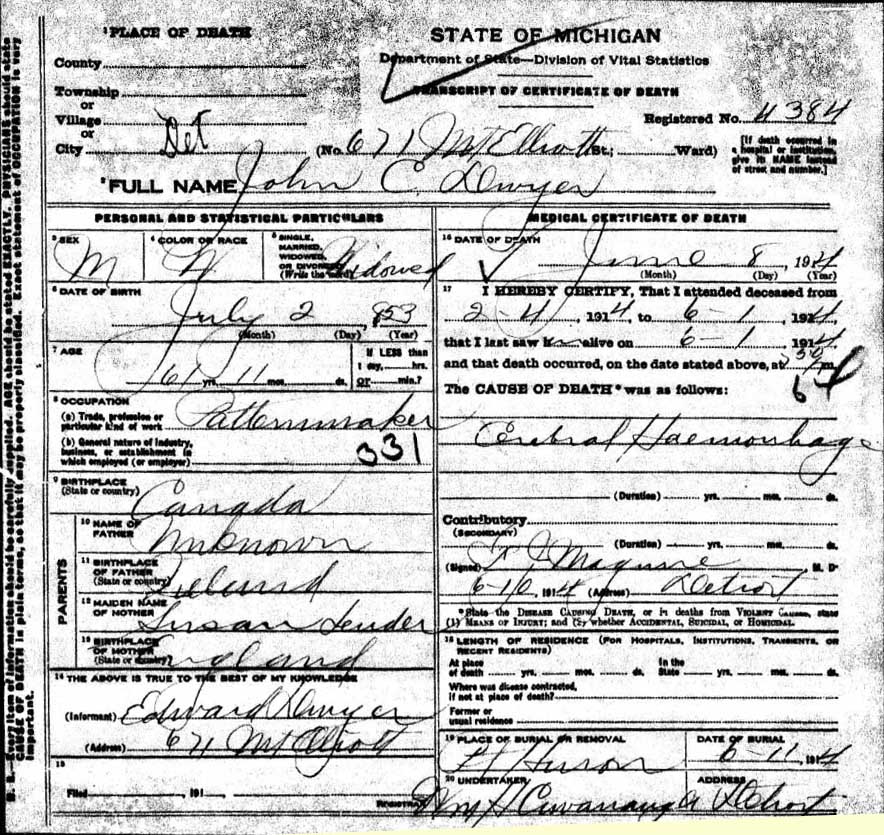 STATE OF MICHIGAN
Department of State—Division of Vital Statistics
TRANSCRIPT OF CERTIFICATE OF DEATH
Registered No. 4384
1 PLACE OF DEATH
County
Township
or
Village
or
City Det (No. 671 Mt Elliott St.; Ward)
[If death occurred in a hospital or institution, give its NAME instead of street and number.]
2 FULL NAME John C. Dwyer
PERSONAL AND STATISTICAL PARTICULARS
3 SEX M
4 COLOR OR RACE W
5 SINGLE, MARRIED, WIDOWED, OR DIVORCED (Write the word) Widowed
6 DATE OF BIRTH
July 2, 1853
(Month) (Day) (Year)
7 AGE
61 yrs. 11 mos. ds.
If LESS than 1 day, hrs. or min.?
8 OCCUPATION
(a) Trade, profession or particular kind of work Patternmaker
(b) General nature of industry, business, or establishment in which employed (or employer)
331
9 BIRTHPLACE (State or country) Canada
PARENTS
10 NAME OF FATHER Unknown
11 BIRTHPLACE OF FATHER (State or country) Ireland
12 MAIDEN NAME OF MOTHER Susan
13 BIRTHPLACE OF MOTHER (State or country) England
14 THE ABOVE IS TRUE TO THE BEST OF MY KNOWLEDGE
(Informant) Edward Dwyer
(Address) 671 Mt Elliott
15
Filed , 191
REGISTRAR
MEDICAL CERTIFICATE OF DEATH
16 DATE OF DEATH
June 8, 1914
(Month) (Day) (Year)
17 I HEREBY CERTIFY, That I attended deceased from
2-4, 1914, to 6-1, 1914,
that I last saw him alive on 6-1, 1914,
and that death occurred, on the date stated above, at m
64
The CAUSE OF DEATH* was as follows:
Cerebral Haemorrhage
(Duration) yrs. mos. ds.
Contributory
(SECONDARY)
(Duration) yrs. mos. ds.
(Signed) Maguire M. D.
6-10, 1914 (Address) Detroit
*State the DISEASE CAUSING DEATH, or in deaths from VIOLENT CAUSES, state
(1) MEANS OF INJURY; and (2) whether ACCIDENTAL, SUICIDAL, or HOMICIDAL.
18 LENGTH OF RESIDENCE (FOR HOSPITALS, INSTITUTIONS, TRANSIENTS, OR RECENT RESIDENTS)
At place of death yrs. mos. ds. In the State yrs. mos. ds.
Where was disease contracted, if not at place of death?
Former or usual residence
19 PLACE OF BURIAL OR REMOVAL
Pt Huron
DATE OF BURIAL
6-11, 1914
20 UNDERTAKER
Wm H Cavanaugh
ADDRESS
Detroit
N. B.—Every item of information should be carefully supplied. AGE should be stated EXACTLY. PHYSICIANS should state
CAUSE OF DEATH in plain terms, so that it may be properly classified. Exact statement of OCCUPATION is very
important.